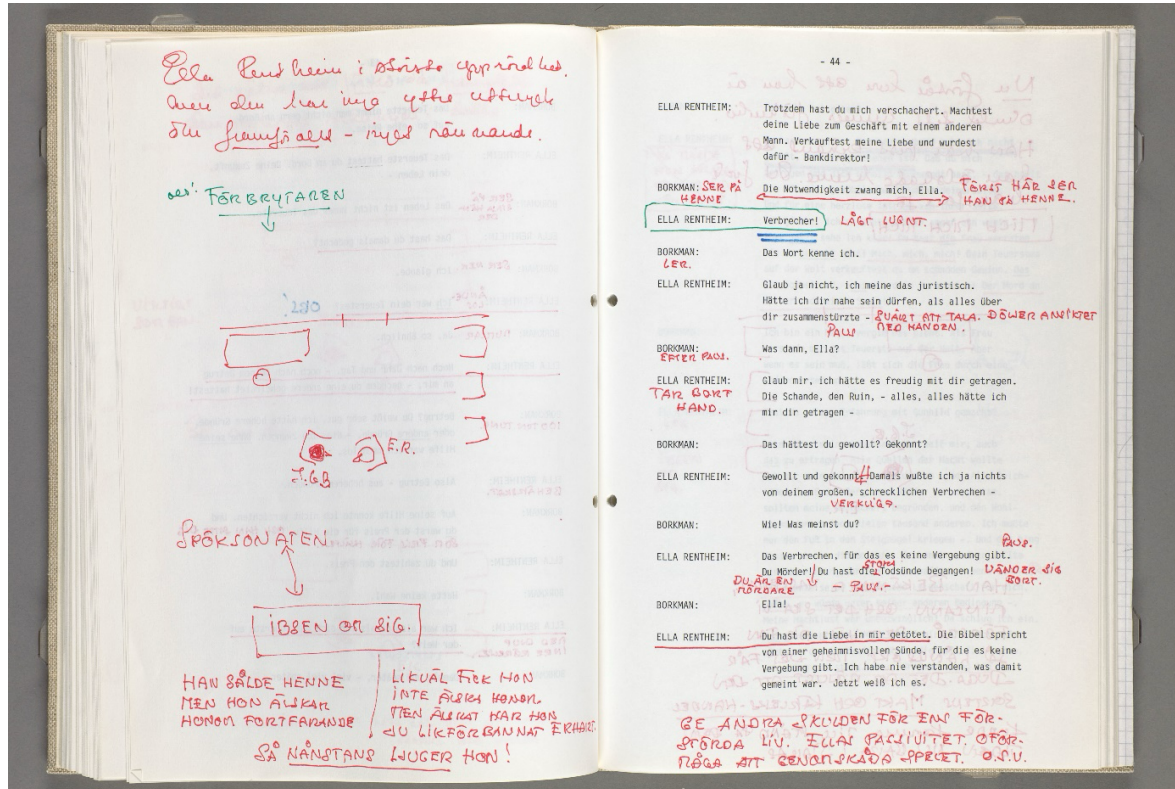 Ella Rentheim i största upprördhet.
men den har inga yttre uttryck
framförallt - inget
FÖRBRYTAREN
OBS!
E.R.
J.G.B
SPÖKSONATEN
IBSEN OR SIG.
HAN SÅLDE HENNE
MEN HON ÄLSKAR
HONOM FORTFARANDE
LIKVÄL FICK HON
INTE ÄLSKA HONOM.
MEN ÄLSKAT HAR HON
JU LIKFÖRBANNAT ERHART.
SÅ NÅNSTANS LJUGER HON!
- 44 -
ELLA RENTHEIM: Trotzdem hast du mich verschachert. Machtest
deine Liebe zum Geschäft mit einem anderen
Mann. Verkauftest meine Liebe und wurdest
dafür - Bankdirektor!
BORKMAN: SER PÅ HENNE Die Notwendigkeit zwang mich, Ella. FÖRST HÄR SER
HAN PÅ HENNE.
ELLA RENTHEIM: Verbrecher! LÅGT LUGNT.
BORKMAN: Das Wort kenne ich.
LER.
ELLA RENTHEIM: Glaub ja nicht, ich meine das juristisch.
Hätte ich dir nahe sein dürfen, als alles über
dir zusammenstürzte - SVÅRT ATT TALA. DÖLJER ANSIKTET
PAUS MED HANDEN.
BORKMAN: Was dann, Ella?
EFTER PAUS.
ELLA RENTHEIM: Glaub mir, ich hätte es freudig mit dir getragen.
TAR BORT Die Schande, den Ruin, - alles, alles hätte ich
HAND. mir dir getragen -
BORKMAN: Das hättest du gewollt? Gekonnt?
ELLA RENTHEIM: Gewollt und gekonnt. Damals wußte ich ja nichts
von deinem großen, schrecklichen Verbrechen -
VERKLIGA.
BORKMAN: Wie! Was meinst du?
PAUS.
ELLA RENTHEIM: Das Verbrechen, für das es keine Vergebung gibt.
STORA
Du Mörder! Du hast die Todsünde begangen! VÄNDER SIG
BORT.
DU ÄR EN
MÖRDARE - PAUS.-
BORKMAN: Ella!
ELLA RENTHEIM: Du hast die Liebe in mir getötet. Die Bibel spricht
von einer geheimnisvollen Sünde, für die es keine
Vergebung gibt. Ich habe nie verstanden, was damit
gemeint war. Jetzt weiß ich es.
GE ANDRA SKULDEN FÖR ENS FÖR-
STÖRDA LIV. ELLAS PASSIVITET. OFÖR-
MÅGA ATT GENOMSKÅDA SPELET. O.S.V.